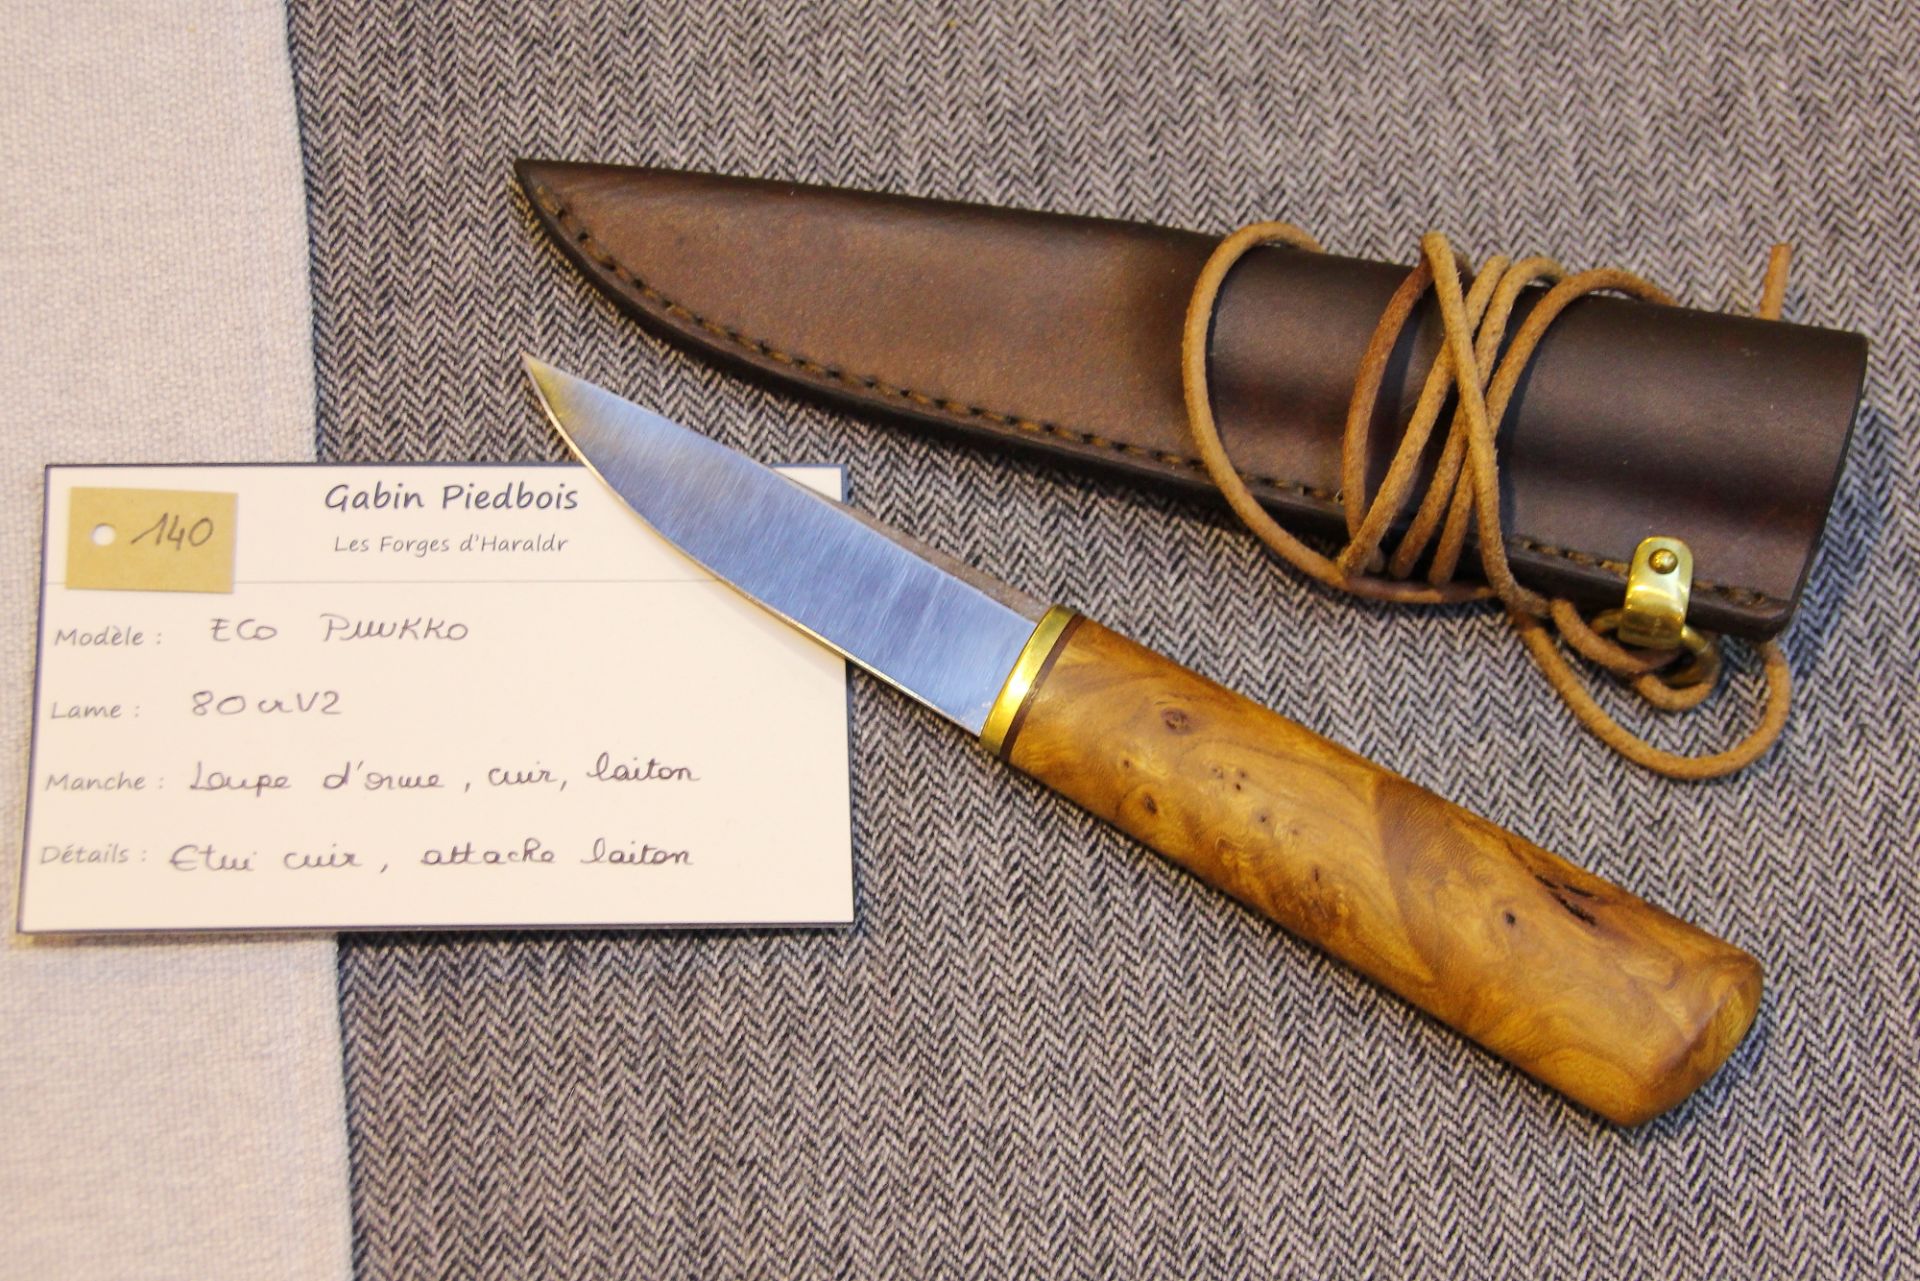 140
Gabin Piedbois
Les Forges d'Haraldr
Modèle : ECo Puukko
Lame : 80crV2
Manche : Loupe d'orme, cuir, laiton
Détails : Etui cuir, attache laiton